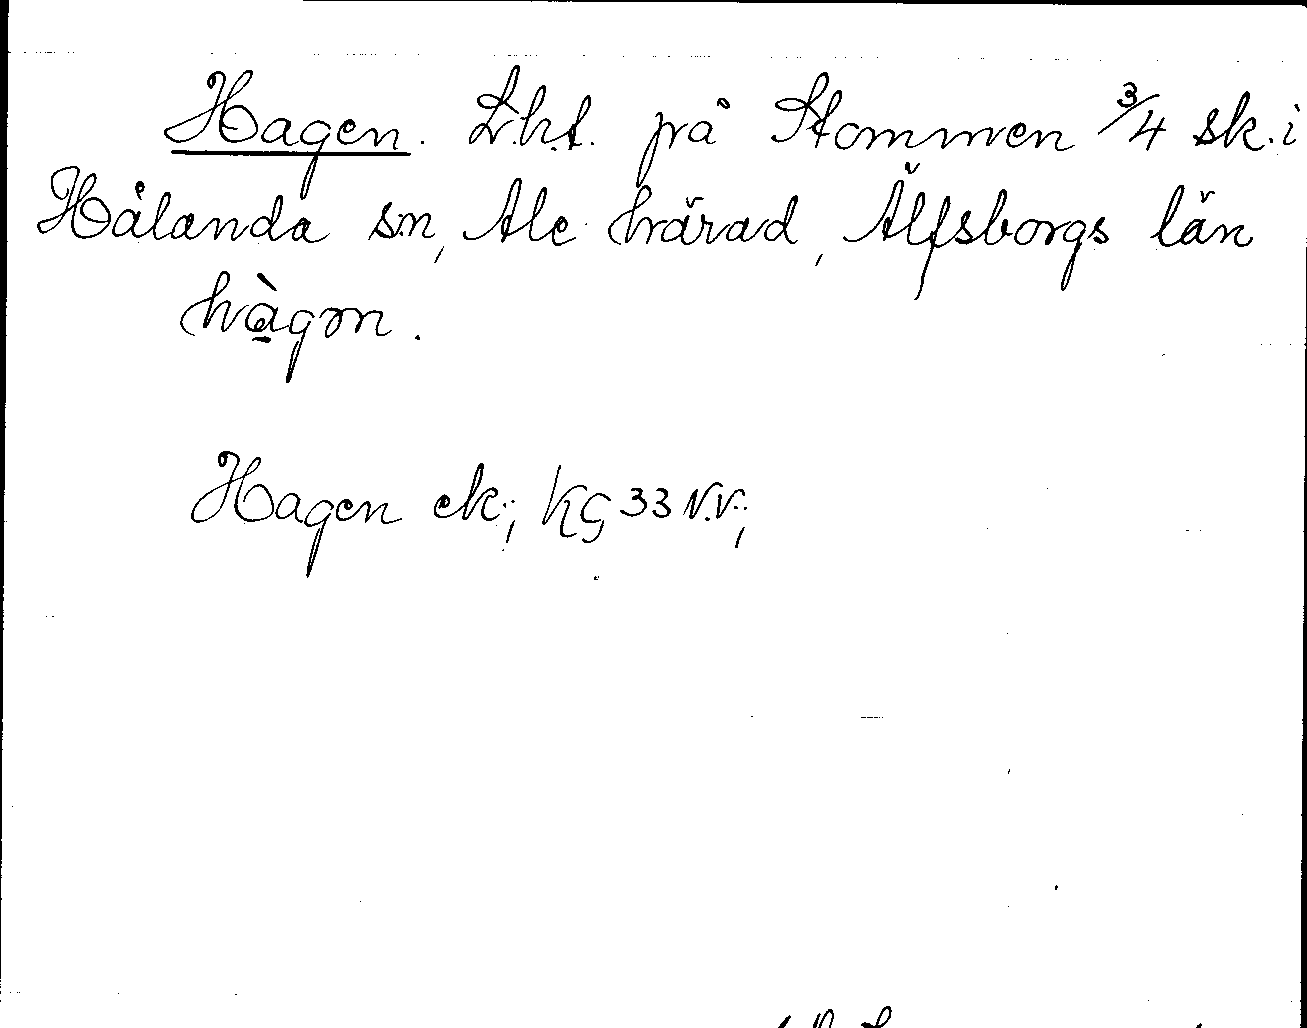 Hagen. Lht. på Stommen 3/4 sk. i
Hålanda sn, Ale härad, Älfsborgs län
hàgon.
Hagen ek; KG 33 N.V.;